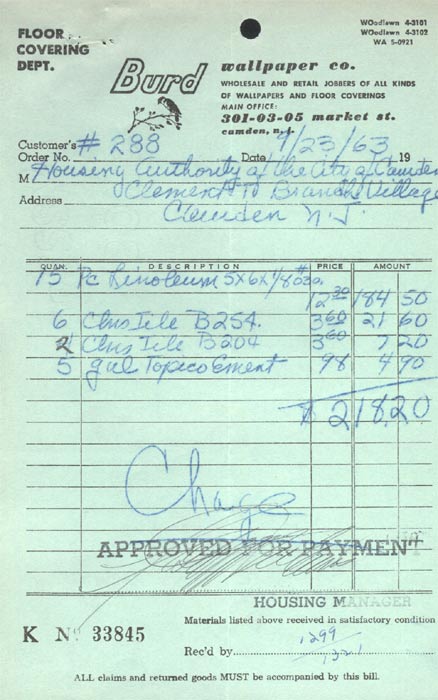 FLOOR
COVERING
DEPT.
WOodlawn 4-3101
WOodlawn 4-3102
WA 5-0921
Burd
wallpaper co.
WHOLESALE AND RETAIL JOBBERS OF ALL KINDS
OF WALLPAPERS AND FLOOR COVERINGS
MAIN OFFICE:
301-03-05 market st.
camden, n.j.
Customer's
Order No. # 288 Date 7/23/63 19
M Housing Authority of the City of Camden
Clement To Branch Village
Address Camden N.J.
QUAN. DESCRIPTION PRICE AMOUNT
15 Pc Linoleum 5x6x1/8 12.30 184 50
6 Ctns Tile B254. 3 60 21 60
2 Ctns Tile B204 3 60 7 20
5 gal Topico Cement 98 4 90
$ 218.20
Charge
APPROVED FOR PAYMENT
HOUSING MANAGER
K No 33845
Materials listed above received in satisfactory condition
1299
Rec'd by 1321
ALL claims and returned goods MUST be accompanied by this bill.